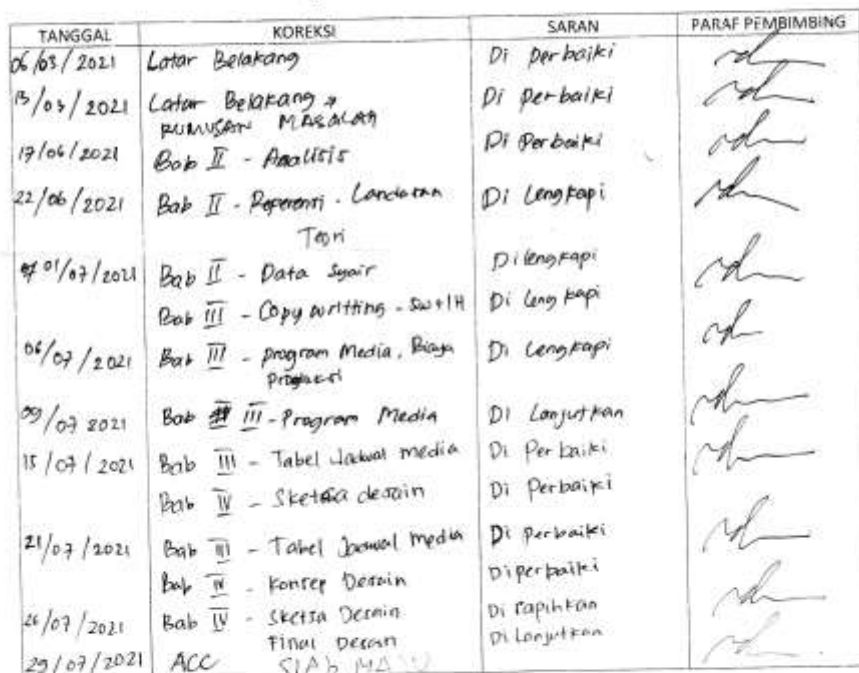 TANGGAL KOREKSI SARAN PARAF PEMBIMBING
06/03/2021 Latar Belakang Di perbaiki
13/03/2021 Latar Belakang + Di perbaiki
RUMUSAN MASALAH
17/06/2021 Bab II - Analisis Di Perbaiki
22/06/2021 Bab II - Referensi - Landasan Di Lengkapi
Teori
01/07/2021 Bab II - Data Syair Dilengkapi
Bab III - Copy writting - 5W+1H Di Lengkapi
06/07/2021 Bab III - program Media, Biaya Di Lengkapi
produksi
09/07 2021 Bab III - Program Media DI Lanjutkan
15/07/2021 Bab III - Tabel Jadwal media Di Perbaiki
Bab IV - Sketsa desain Di Perbaiki
21/07/2021 Bab III - Tabel Jadwal Media Di perbaiki
Bab IV - Konsep Desain Diperbaiki
26/07/2021 Bab IV - Sketsa Desain Di rapihkan
Final Desain Di Lanjutkan
29/07/2021 ACC SIAP MAJU